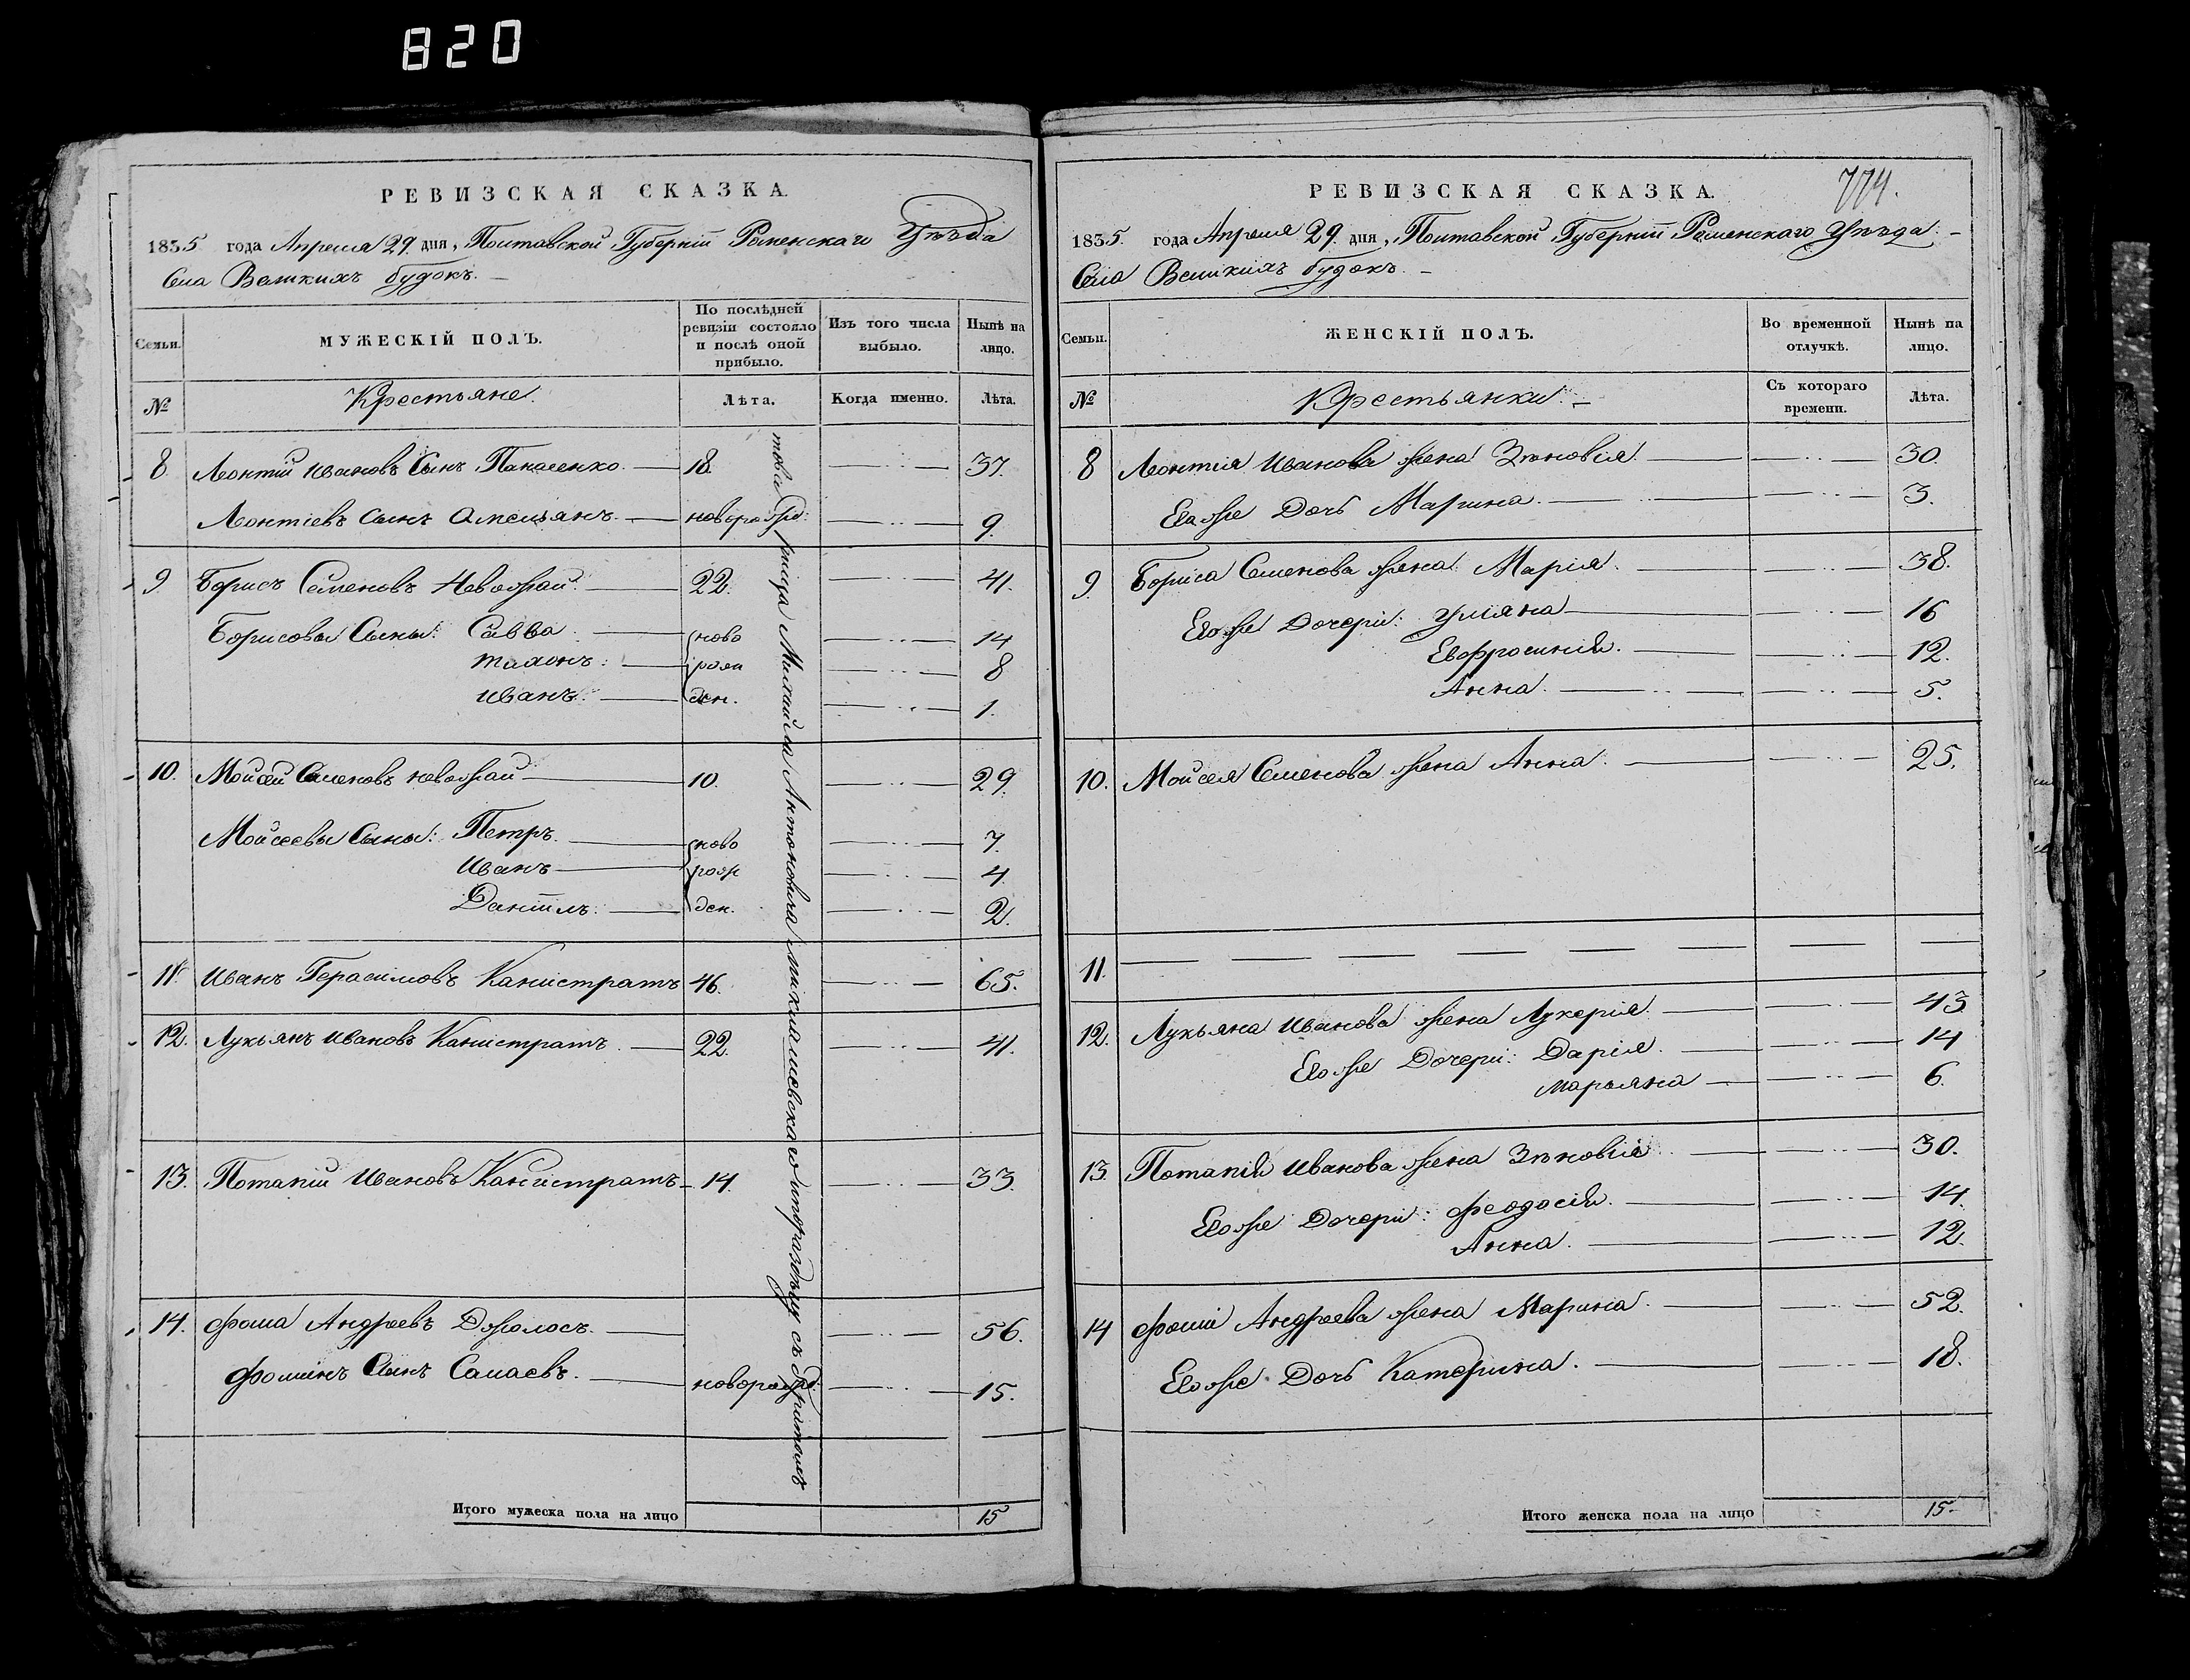 820
РЕВИЗСКАЯ СКАЗКА.
1835 года Апреля 29. дня, Полтавской Губерніи Роменскаго Уѣзда
Села Великихъ будокъ.
Семьи.
МУЖЕСКІЙ ПОЛЪ.
По послѣдней ревизіи состояло и послѣ оной прибыло.
Изъ того числа выбыло.
Нынѣ на лицо.
№
Крестьяне.
Лѣта.
Когда именно.
Лѣта.
8 Леонтій Ивановъ Сынъ Панасенко 18. 37.
Леонтіевъ сынъ Емельянъ новорожд: 9.
9 Борисъ Семеновъ Неволжай 22. 41.
Борисовы Сыны: Савва ново 14
Тихонъ: рож 8
Иванъ. ден. 1.
10. Мойсей Семеновъ неволжай 10. 29.
Мойсеевы Сыны: Петръ ново 7.
Иванъ рож 4
Даніилъ ден. 2.
11. Иванъ Герасимовъ Канистратъ 46. 65.
12. Лукьянъ Ивановъ Канистратъ 22. 41.
13. Потапій Ивановъ Канистратъ 14. 33.
14. Фома Андреевъ Джолосъ 56.
Фоминъ Сынъ Самаевъ. новорожд: 15.
Михаила Антоновича съ братиевъ
Итого мужеска пола на лицо 15
РЕВИЗСКАЯ СКАЗКА.
774.
1835. года Апреля 29. дня, Полтавской Губерніи Роменскаго Уѣзда.
Села Великихъ будокъ.
Семьи.
ЖЕНСКІЙ ПОЛЪ.
Во временной отлучкѣ.
Нынѣ на лицо.
№
Крестьянки.
Съ котораго времени.
Лѣта.
8 Леонтія Иванова жена Зѣновія 30.
Его же Дочь Марина. 3.
9. Бориса Семенова жена Марія. 38.
Его же Дочери: Уляна 16
Евфросинія. 12.
Анна. 5.
10. Мойсея Семенова жена Анна. 25.
11.
12. Лукьяна Иванова жена Лукерія 43
Его же Дочери: Дарія. 14
Марьяна 6.
13. Потапія Иванова жена Зѣновія 30.
Его же Дочери: Феодосія. 14.
Анна. 12.
14 Фоми Андреева жена Марина. 52.
Его же Дочь Катерина. 18.
Итого женска пола на лицо 15.